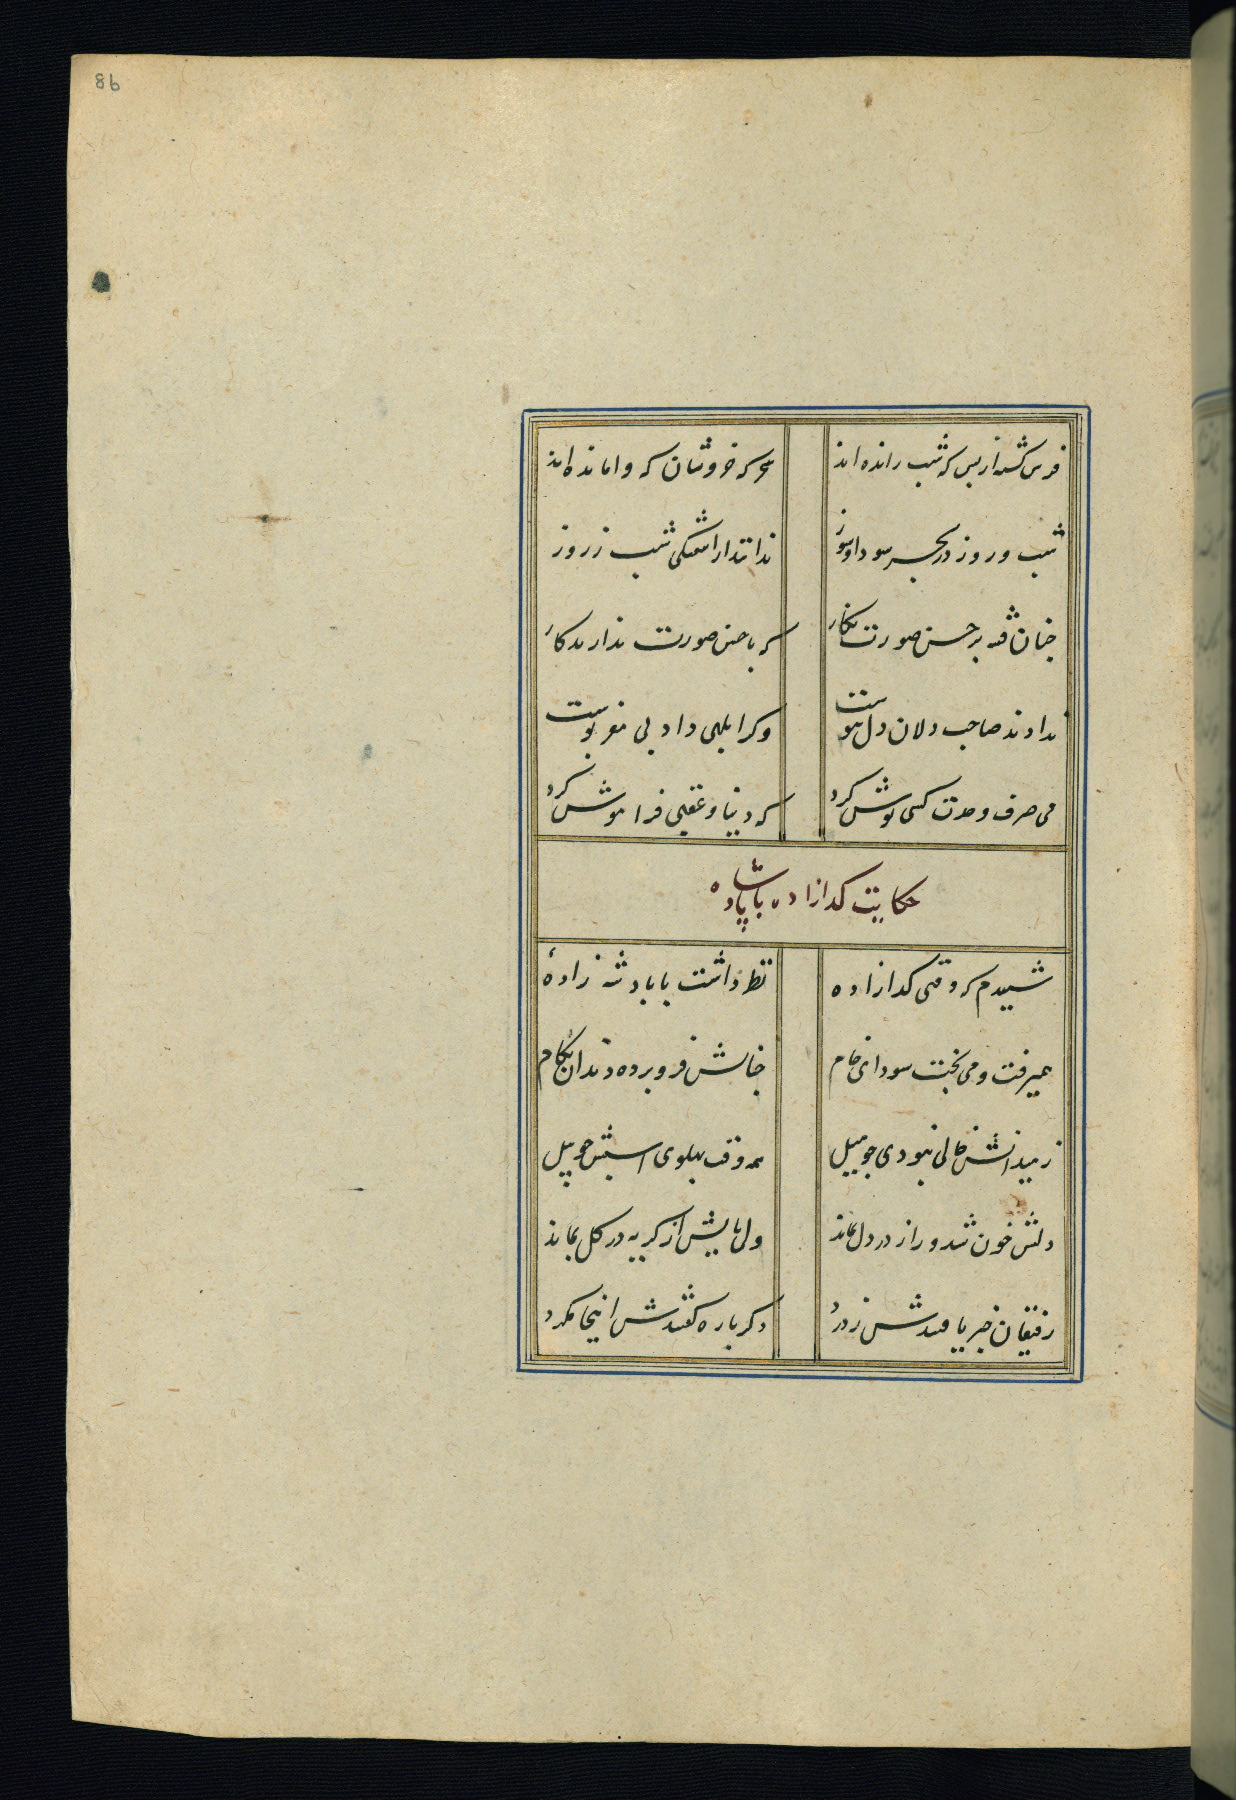 86
فرس کشته از بس که شب رانده‌اند سحرگه خروشان که وامانده‌اند
شب و روز در بحر سودا و سوز ندانند از آشفتگی شب ز روز
چنان فتنه بر حسن صورت نگار که با حسن صورت ندارند کار
ندادند صاحب دلان دل بپوست وگر ابلهی داد بی مغز اوست
می صرف وحدت کسی نوش کرد که دنیا و عقبی فراموش کرد
حکایت گدازاده با پادشاه‌زاده
شنیدم که وقتی گدازاده نظر داشت با پادشه زادهٔ
همیرفت و می پخت سودای خام خیالش فرو برده دندان بکام
ز میدانش خالی نبودی چو میل همه وقت پهلوی اسبش چو پیل
دلش خون شد و راز در دل بماند ولی پایش از گریه در گل بماند
رفیقان خبر یافتندش ز درد دگرباره گفتندش اینجا مگرد